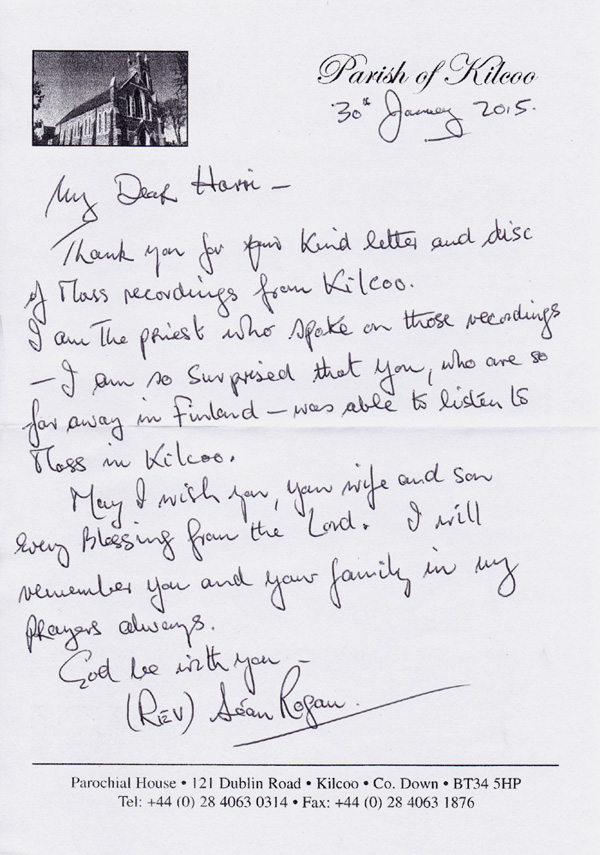 Parish of Kilcoo
30th January 2015.
My Dear Harri –
Thank you for your kind letter and disc
of Mass recordings from Kilcoo.
I am the priest who spoke on those recordings
– I am so surprised that you, who are so
far away in Finland – was able to listen to
Mass in Kilcoo.
May I wish you, your wife and son
every Blessing from the Lord. I will
remember you and your family in my
prayers always.
God be with you –
(REV) Séan Rogan.
Parochial House • 121 Dublin Road • Kilcoo • Co. Down • BT34 5HP
Tel: +44 (0) 28 4063 0314 • Fax: +44 (0) 28 4063 1876